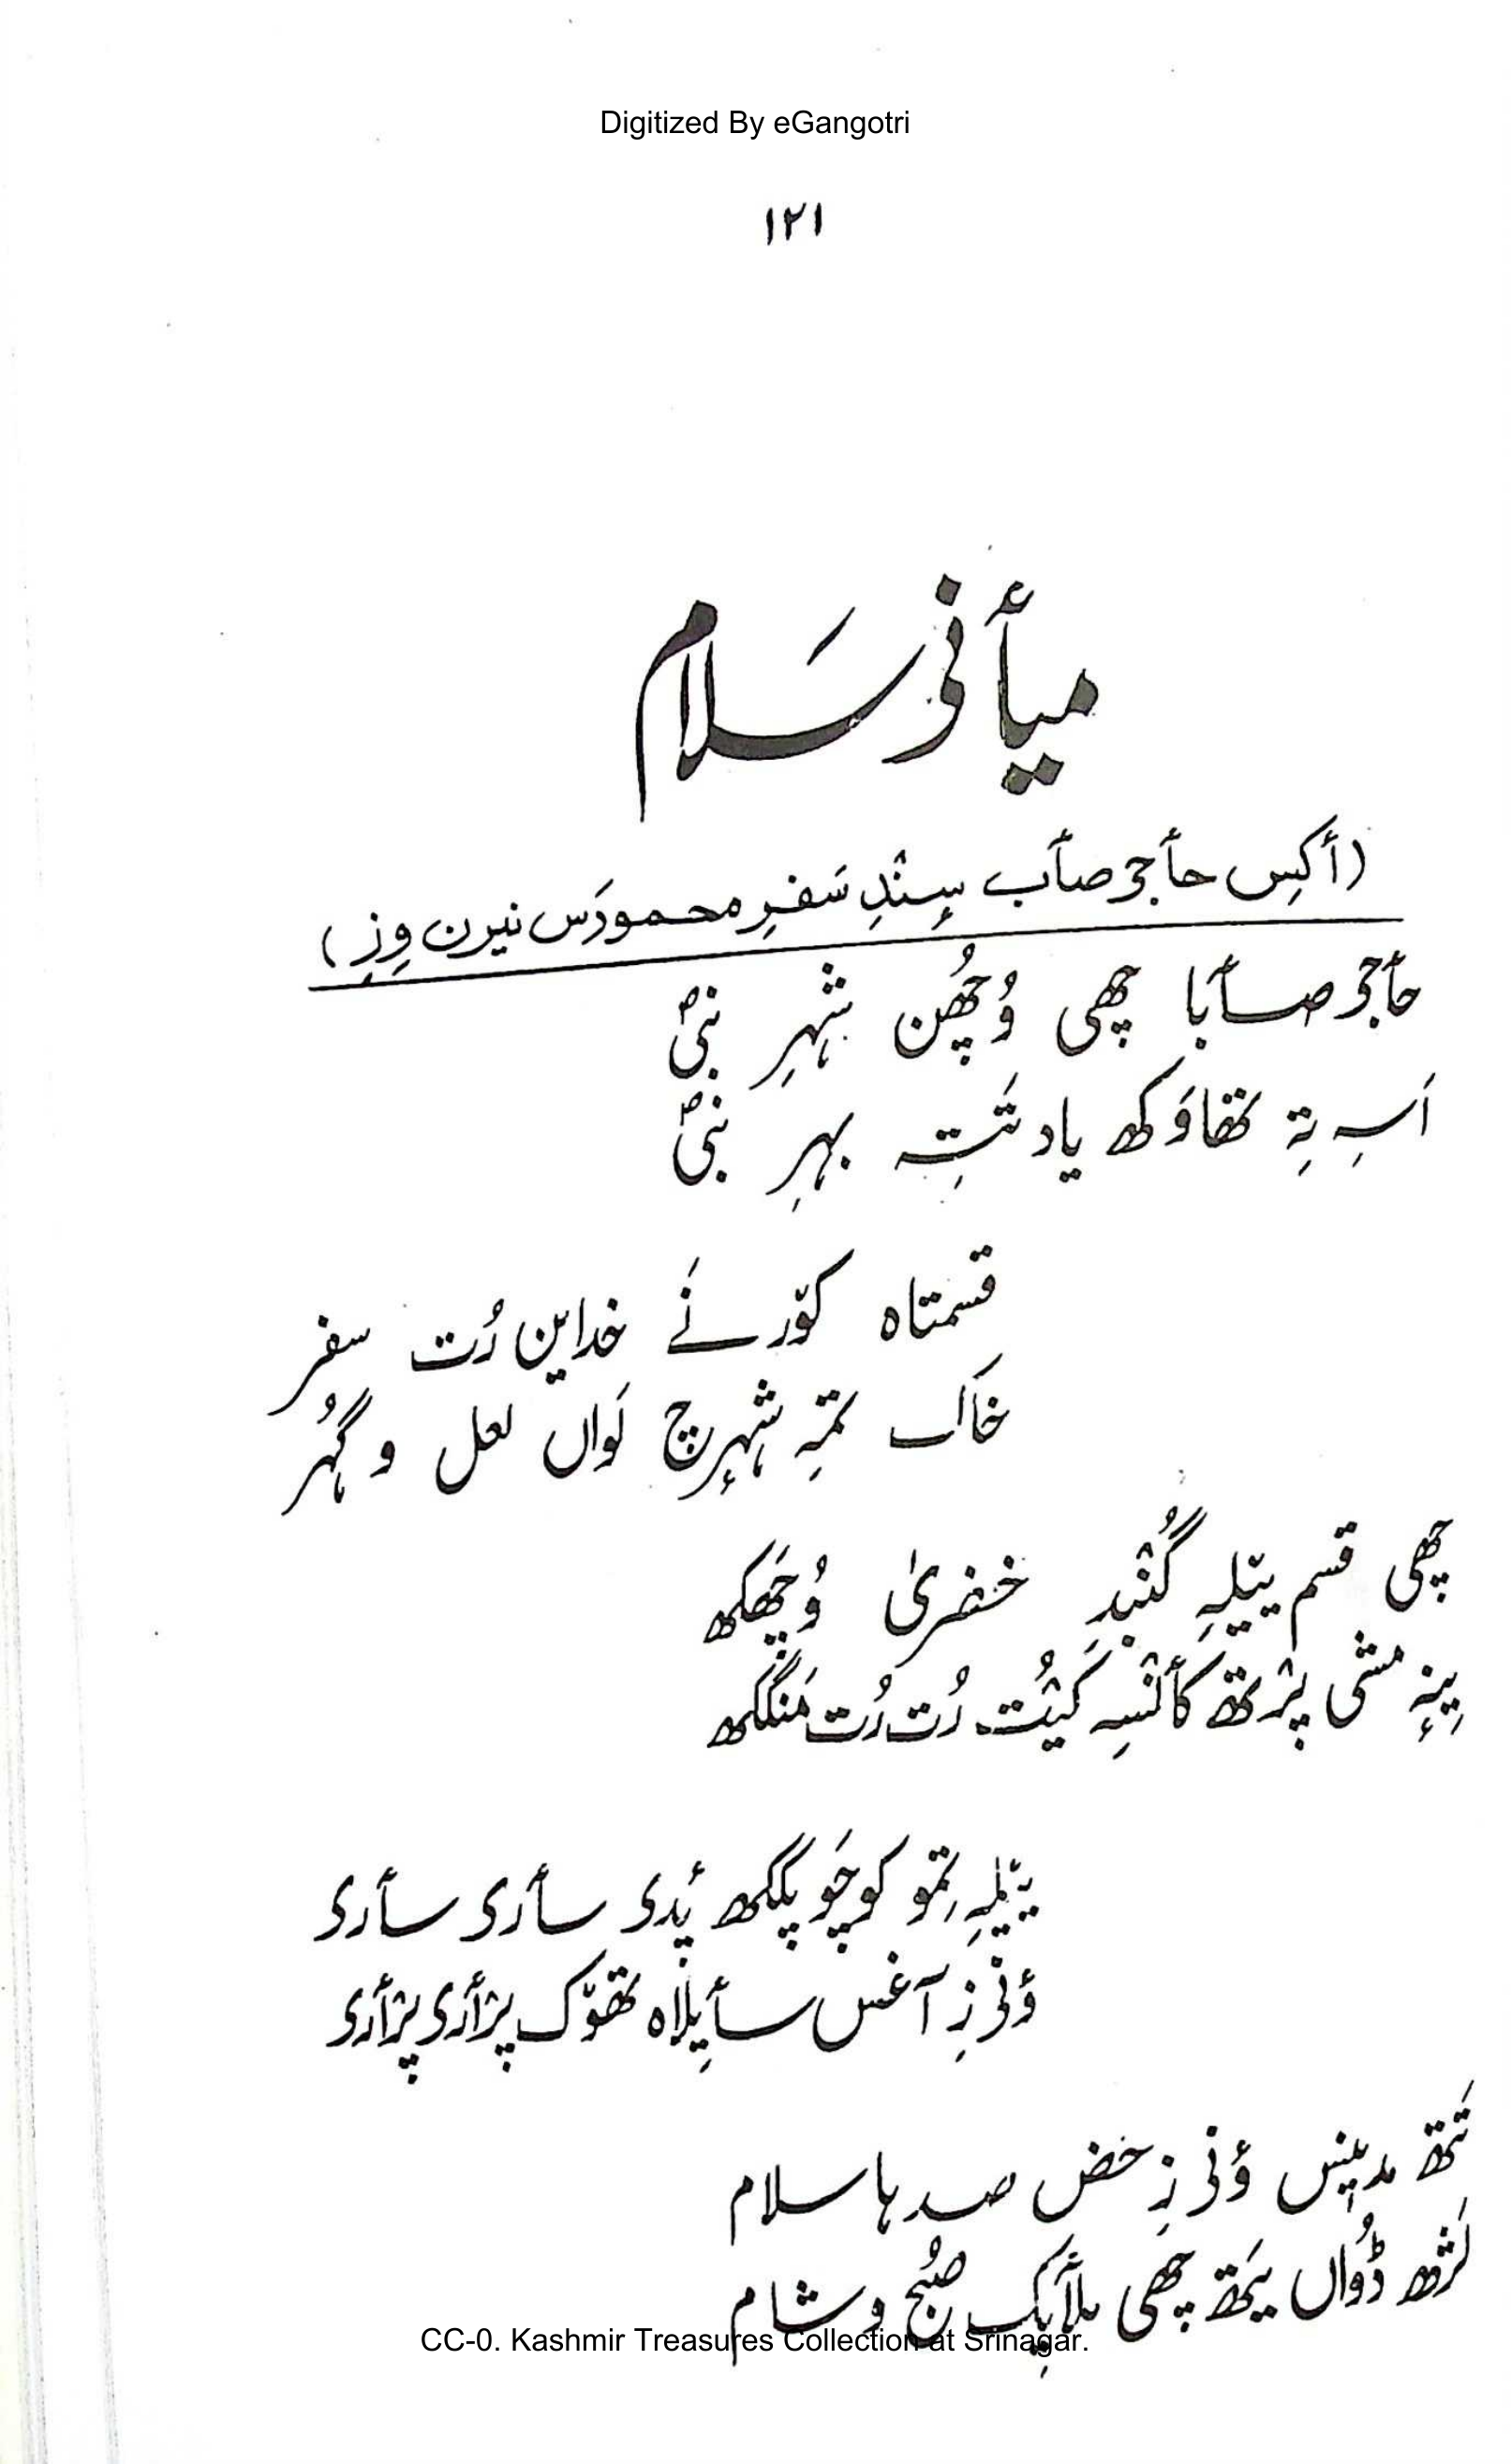 Digitized By eGangotri
۱۲۱
میأنی سَلام
(أکِس حأجی صأب سٕنٛدِ سَفرِ محمودَس نیرن وِزِ)
حأجی صأبا چھی وُچھُن شہرِ نبیؐ
اَسہِ تہِ تھاوَکھ یاد تَتہِ بہرِ نبیؐ
قسمتاہ کوٚرنے خداین رُت سفر
خاک تمہِ شہرٕچ لَواں لعل و گُہر
چھی قسم ییٚلہِ گُنٛبدِ خضریٰ وُچھکھ
یِنہٕ مشی پرٛتھ کأنٛسہِ کیُت رُت رُت مَنگکھ
ییٚلہِ تِمو کوچَو پککھ پٔدی سأری سأری
ؤنی زِ آغس سأیِلاہ تھوٚک پرٛأری پرٛأری
تَتھ مدینس ؤنی زِ حض صد ہا سلام
لَرٛھ ڈُواں یَتھ چھی ملأیِک صُبح و شام
CC-0. Kashmir Treasures Collection at Srinagar.